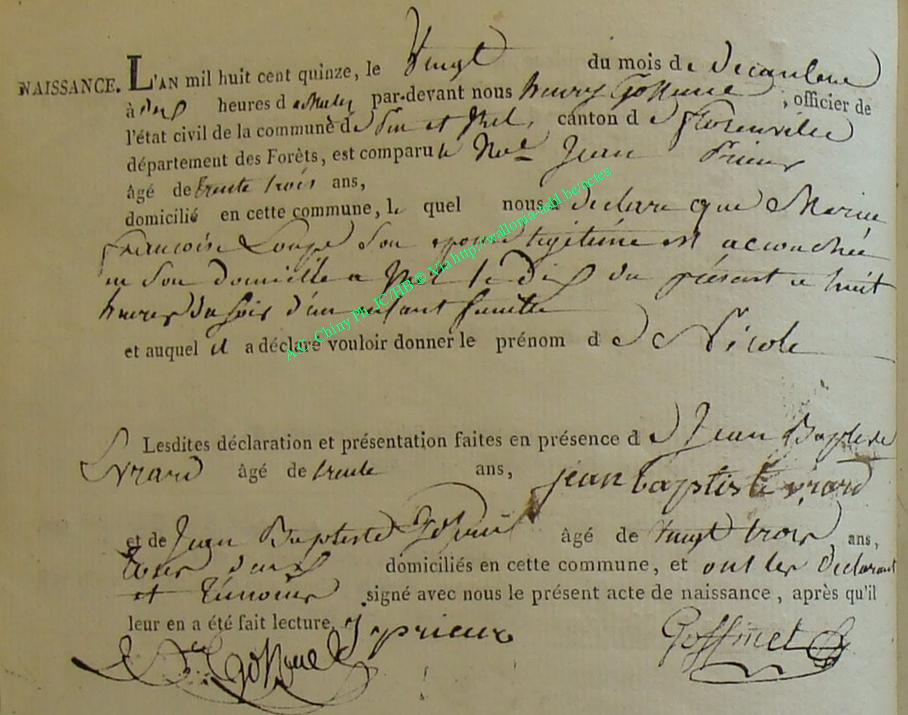 NAISSANCE. L'AN mil huit cent quinze, le Vingt du mois de decembre
à dix heures d par-devant nous henry Goffinet, officier de
l'état civil de la commune de et , canton de florenville
département des Forêts, est comparu le Nod. Jean Prieux
âgé de trente trois ans,
domicilié en cette commune, le quel nous a declaré que Marie
francoise Loupe son epouse legitime est accouchée
en son domicille a le dix du présent a huit
heures du soir d'un enfant femelle
et auquel il a déclaré vouloir donner le prénom de Nicole
Lesdites déclaration et présentation faites en présence de Jean Baptiste
Evrard âgé de trente ans, jean baptiste evrard
et de Jean Baptiste âgé de vingt trois ans,
tous deux domiciliés en cette commune, et ont les declarant
et témoins signé avec nous le présent acte de naissance, après qu'il
leur en a été fait lecture. J prieux
Goffinet
AGR Chiny Ph JC/HB © Via http://wallonia-asbl.be/actes